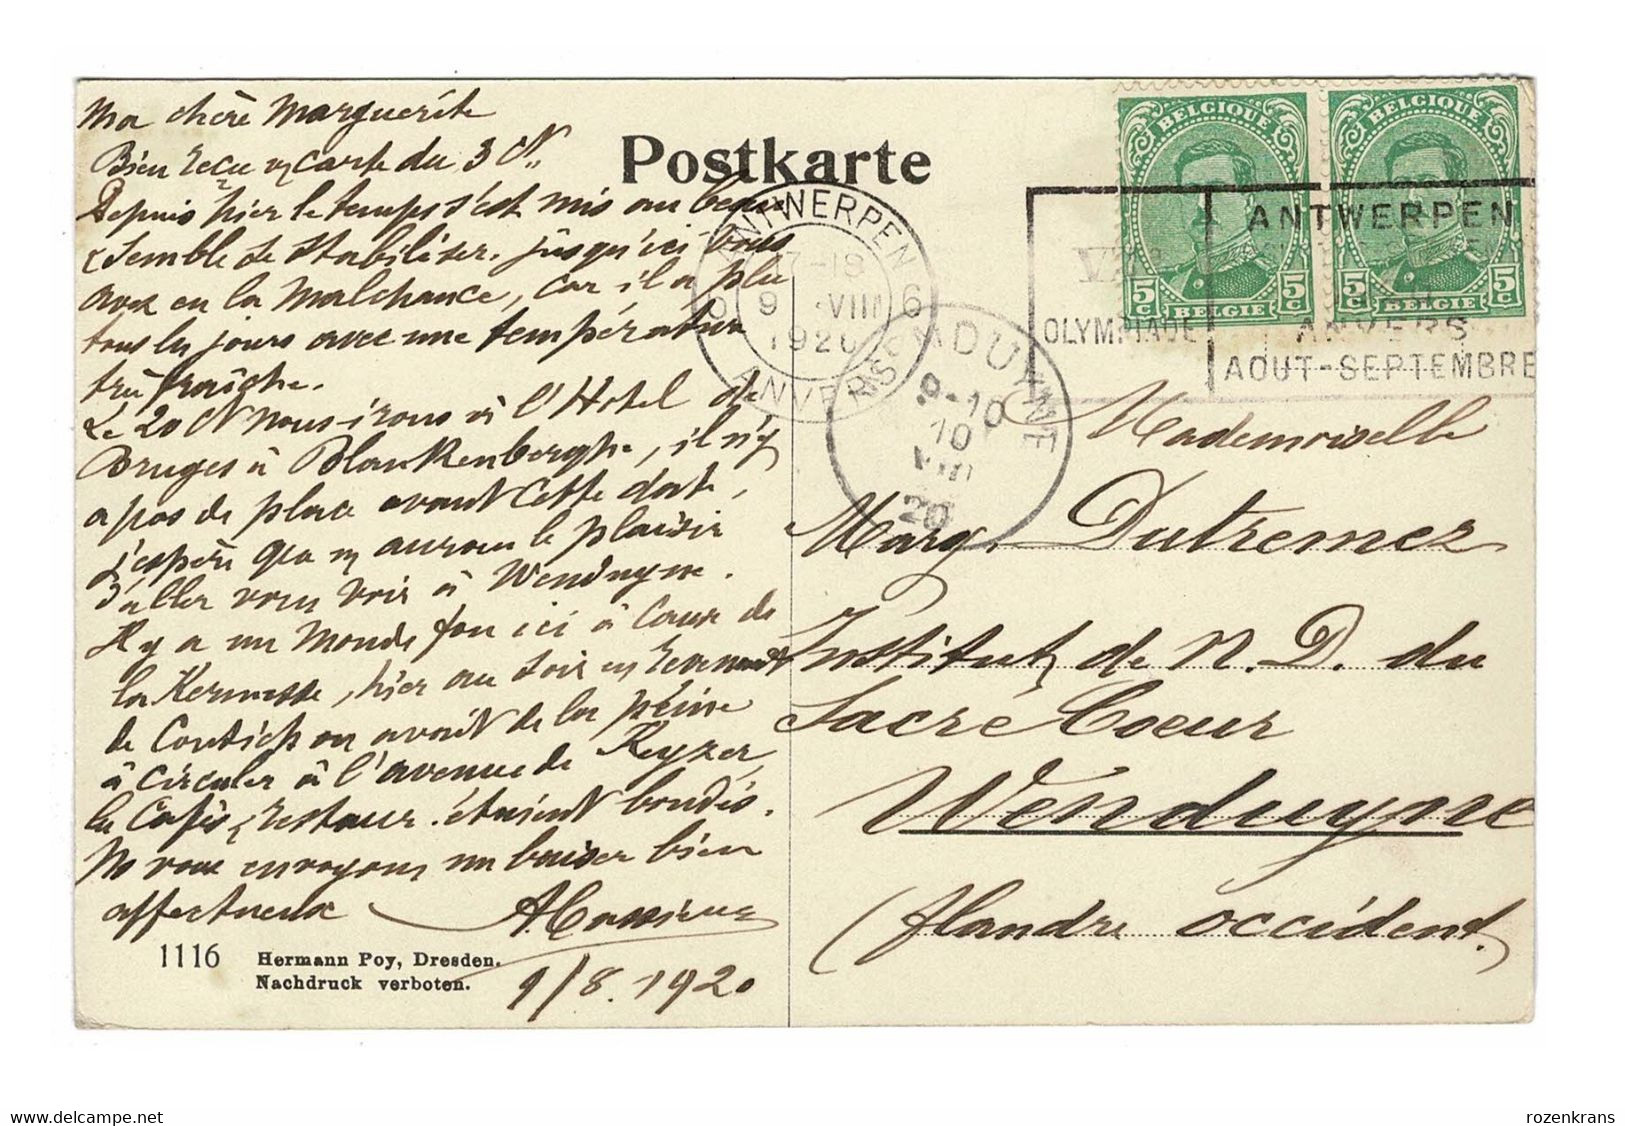 Ma chère Marguerite
Bien reçu v/ carte du 3 Ct.
Depuis hier le temps s'est mis au beau
& semble se stabiliser. jusqu'ici vous
avez eu la malchance, car il a plu
tous les jours avec une température
très fraîche.
Le 20 Ct nous irons à l'Hotel de
Bruges à Blankenberghe, il n'y
a pas de place avant cette date,
j'espère que n/ aurons le plaisir
d'aller vous voir à Wenduyne.
Il y a un monde fou ici à cause de
la Kermesse, hier au soir en revenant
de Contich on avait de la peine
à circuler à l'avenue de Keyzer,
les Cafés & restaur. étaient bondés.
Ns vous envoyons un baiser bien
affectueux
9/8.1920
Postkarte
1116
Hermann Poy, Dresden.
Nachdruck verboten.
BELGIQUE
5c BELGIE 5c
BELGIQUE
5c BELGIE 5c
ANTWERPEN 6
17-18
9 VIII
1920
ANVERS
OLYMPIADE
ANTWERPEN
ANVERS
AOUT-SEPTEMBRE
WENDUYNE
9-10
10
VIII
20
Mademoiselle
Marg. Dutremez
Institut de N. D. du
Sacré Coeur
Wenduyne
(flandre occident.)
delcampe.net
rozenkrans